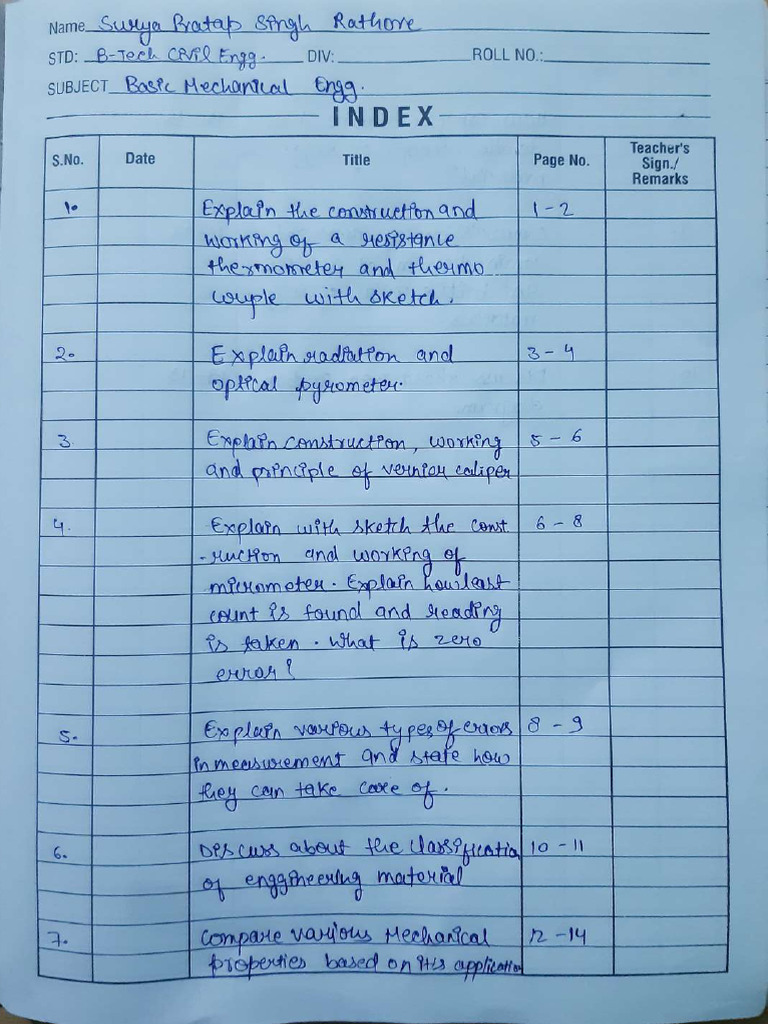 Name Surya Pratap Singh Rathore
STD: B-Tech Civil Engg. DIV: ROLL NO.:
SUBJECT Basic Mechanical Engg.
INDEX
S.No. Date Title Page No. Teacher's Sign./ Remarks
1. Explain the construction and 1-2
working of a resistance
thermometer and thermo
couple with sketch.
2. Explain radiation and 3-4
optical pyrometer.
3. Explain construction, working 5-6
and principle of vernier caliper
4. Explain with sketch the const 6-8
-ruction and working of
micrometer. Explain how least
count is found and reading
is taken. What is zero
error?
5. Explain various types of errors 8-9
in measurement and state how
they can take care of.
6. Discuss about the classification 10-11
of enggineering material
7. Compare various Mechanical 12-14
properties based on its application